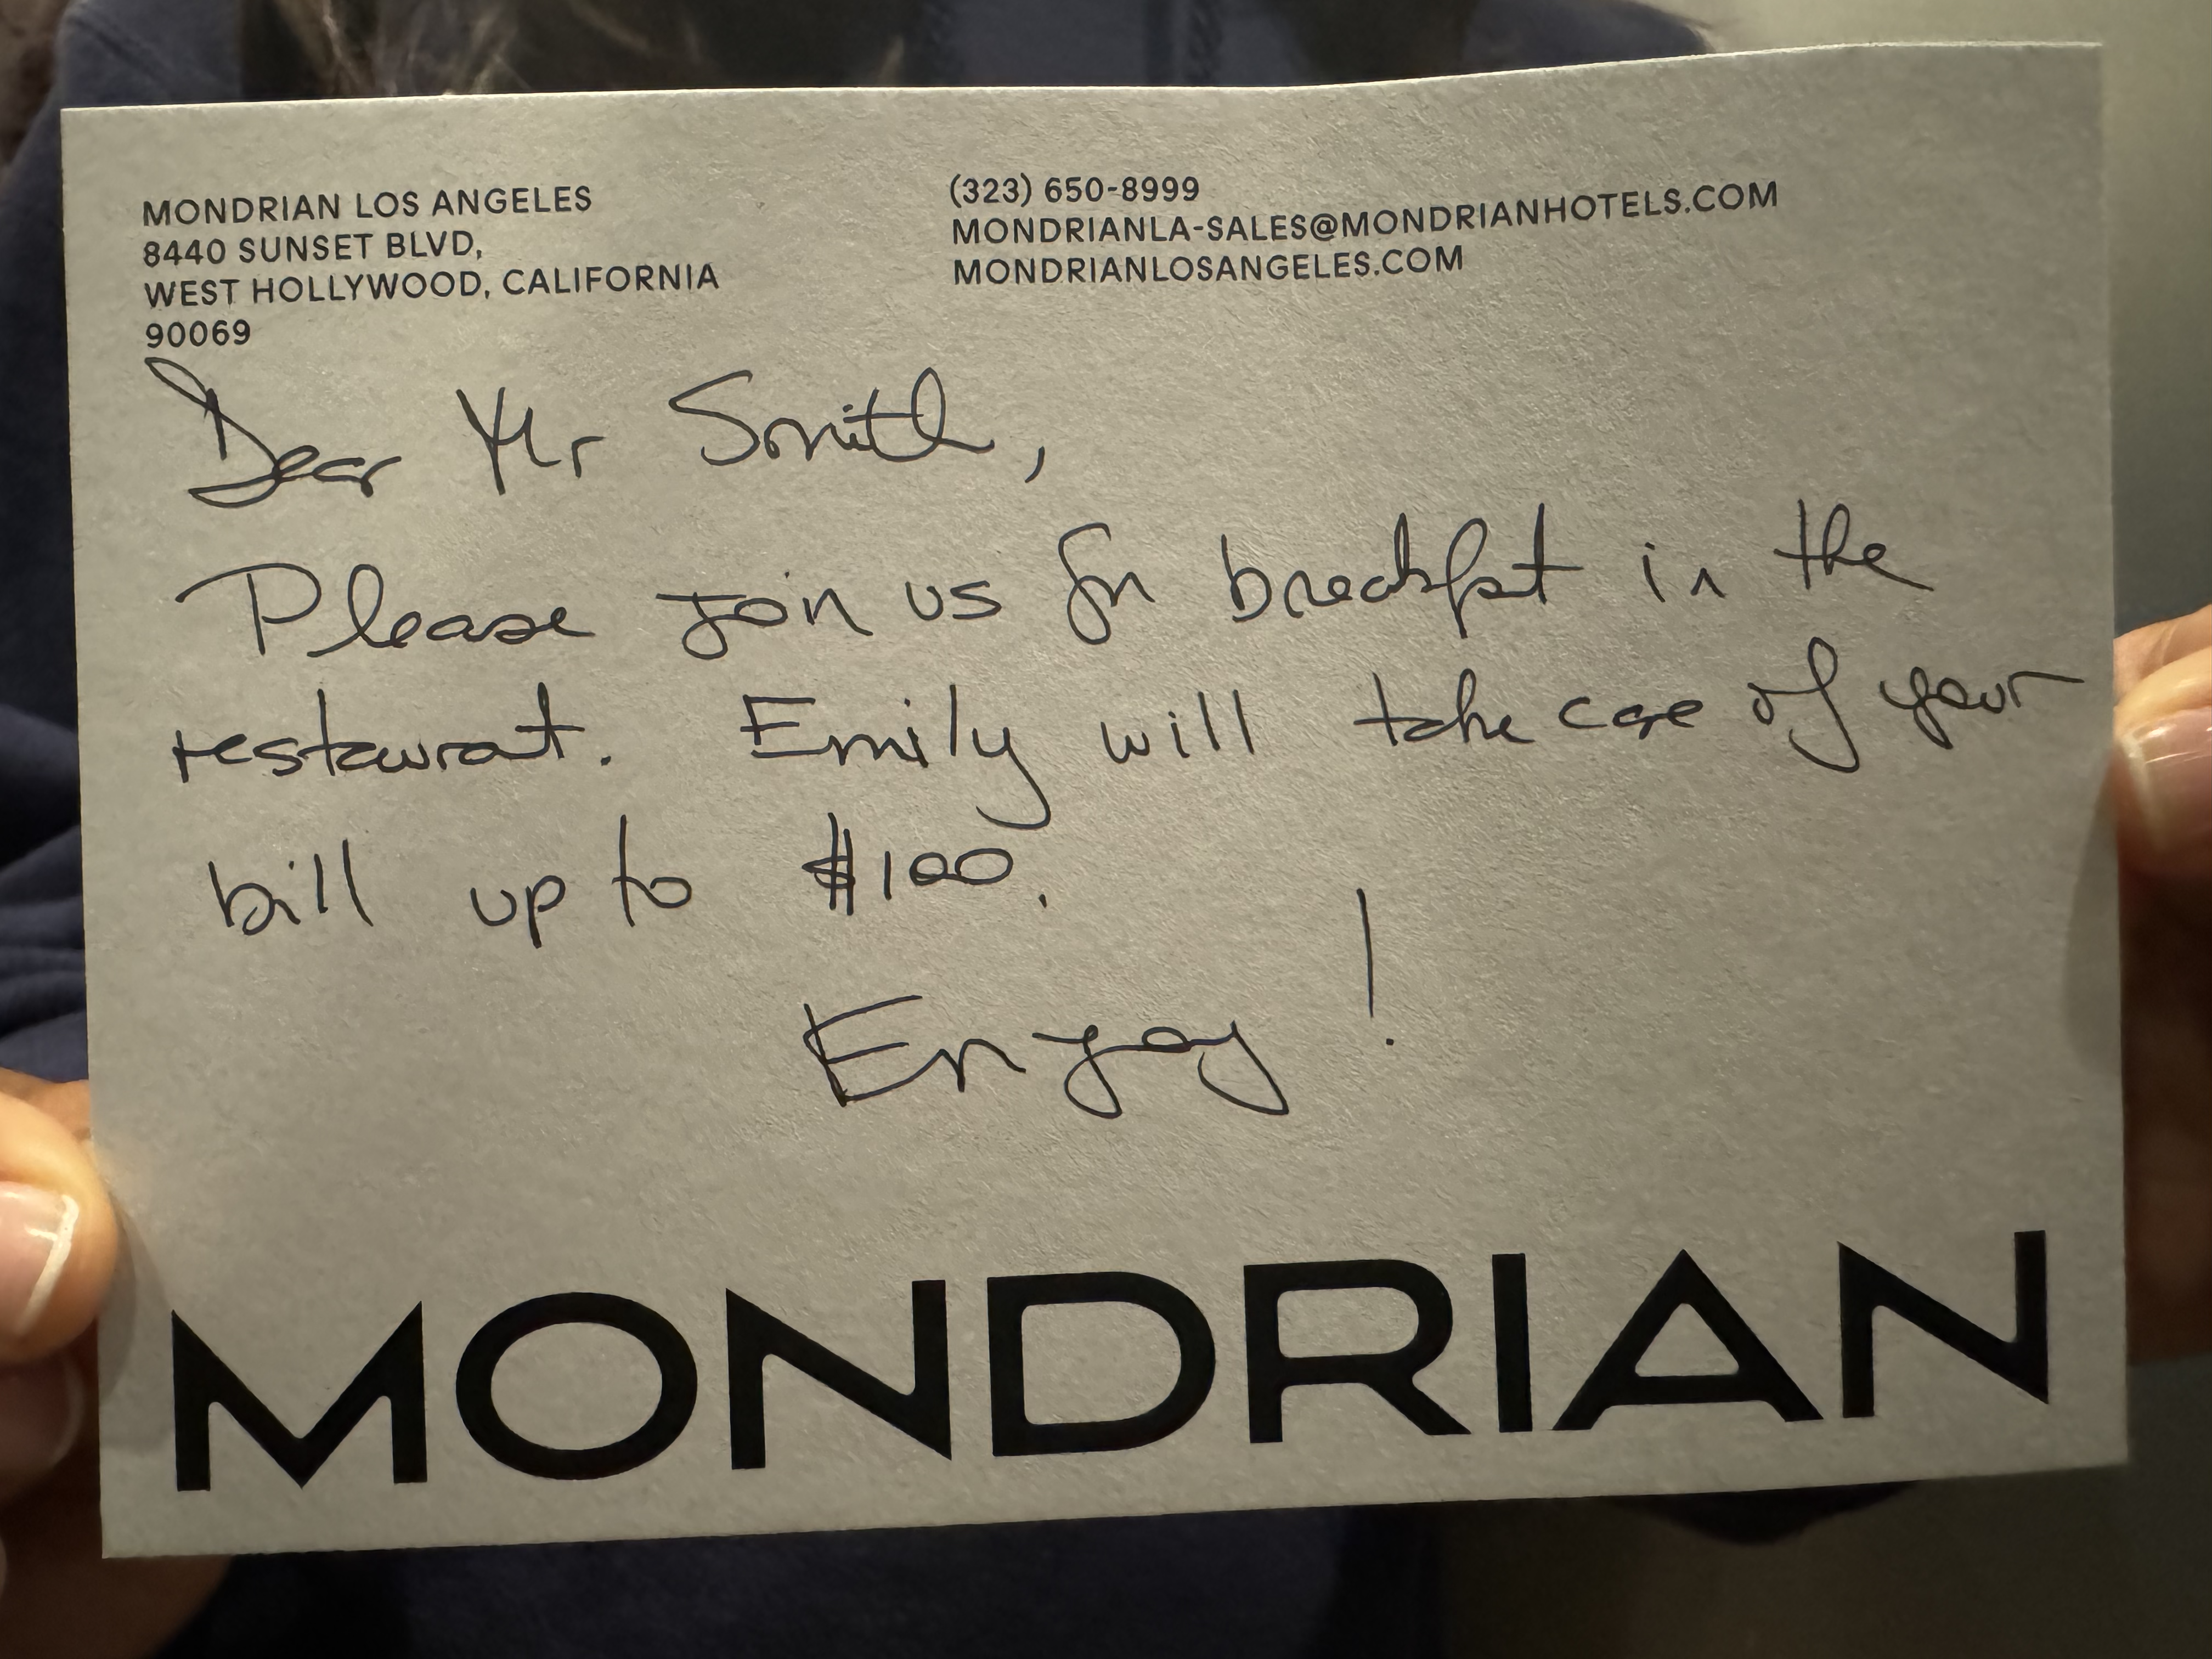 MONDRIAN LOS ANGELES
8440 SUNSET BLVD,
WEST HOLLYWOOD, CALIFORNIA
90069
(323) 650-8999
MONDRIANLA-SALES@MONDRIANHOTELS.COM
MONDRIANLOSANGELES.COM
Dear Mr Smith,
Please join us for breakfast in the
restaurant. Emily will take care of your
bill up to $100.
Enjoy!
MONDRIAN